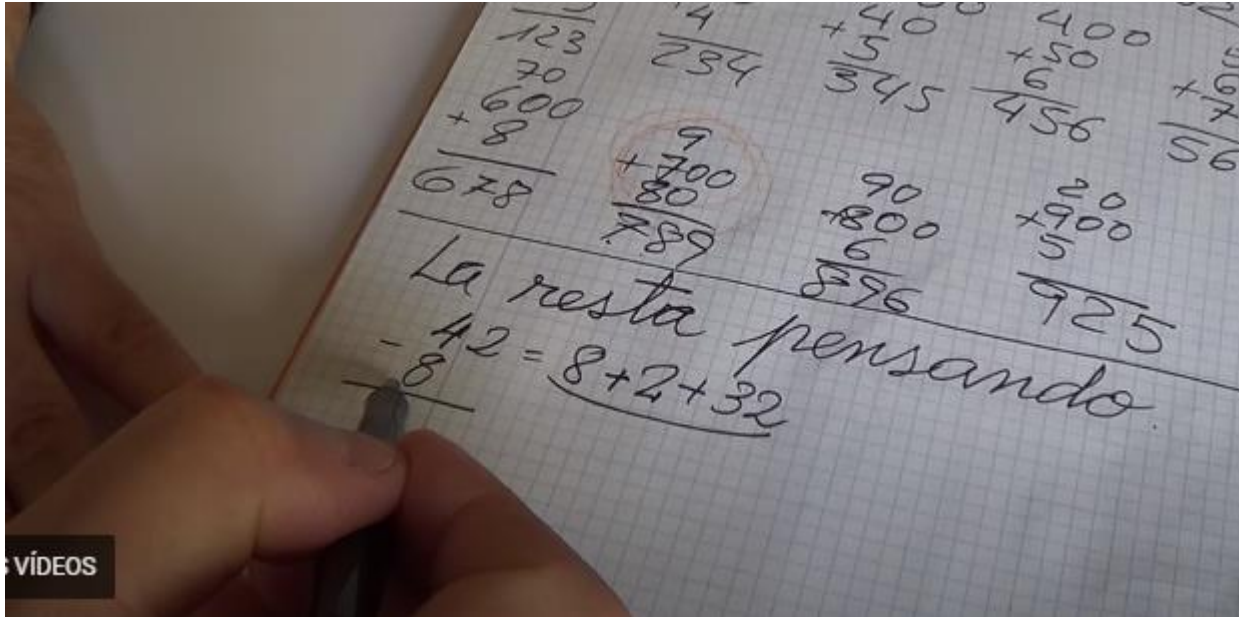 123
4
234
40
+5
345
400
+50
6
456
+6
7
56
70
600
+ 8
678
9
+700
80
789
90
+800
6
896
20
+900
5
925
La resta pensando
- 42 = 8+2+32
8
S VÍDEOS